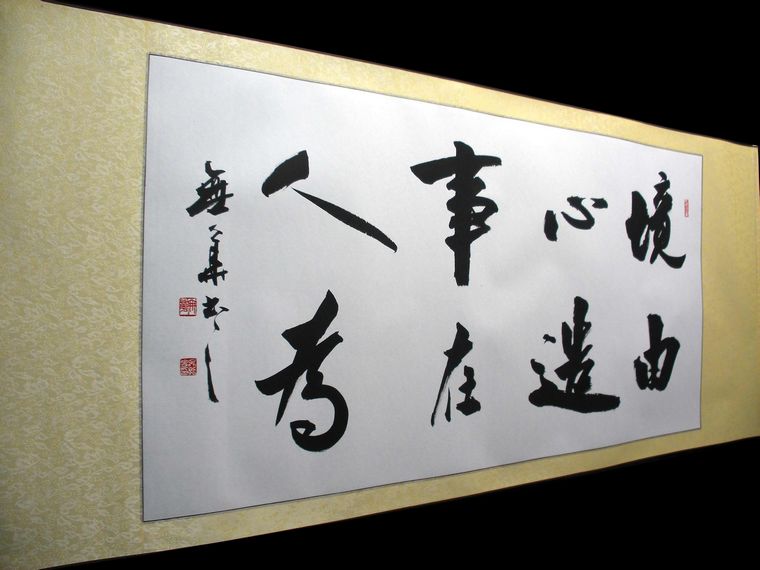 境由
心造
事在
人為
無華書